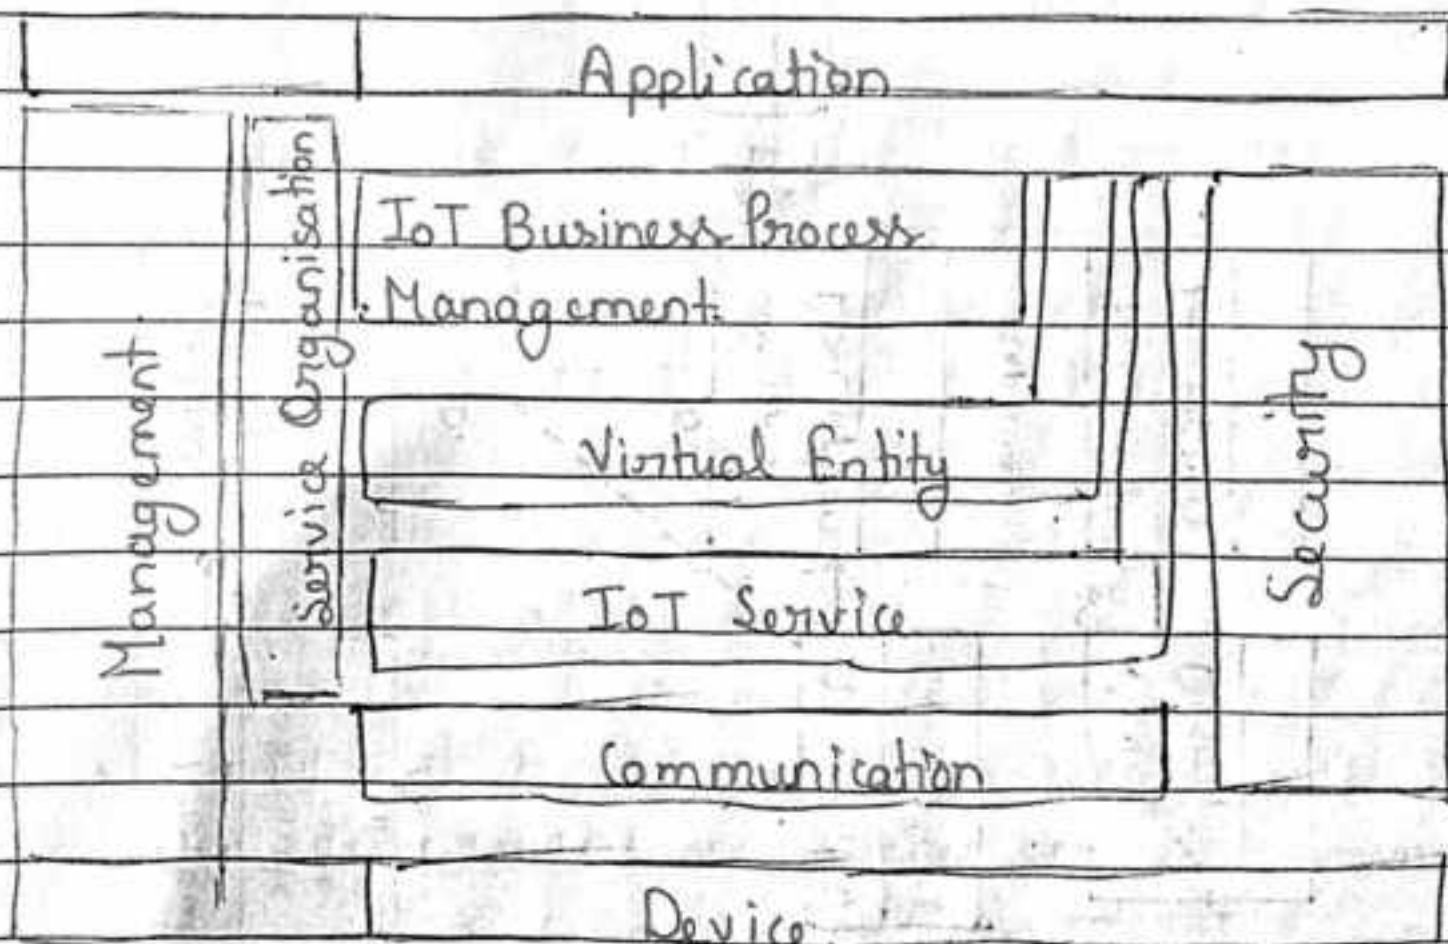 Application
Management
Service Organisation
IoT Business Process
Management
Virtual Entity
IoT Service
Communication
Security
Device